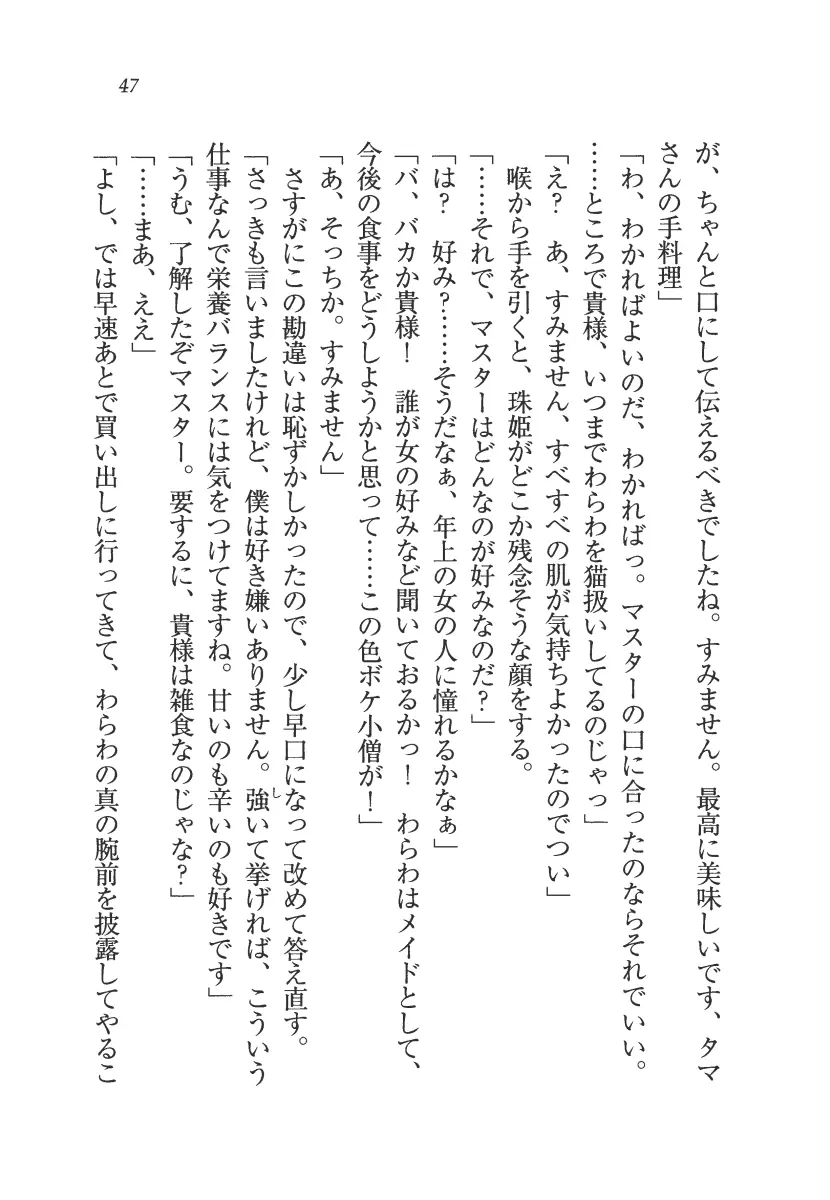 47
が、ちゃんと口にして伝えるべきでしたね。すみません。最高に美味しいです、タマ
さんの手料理」
「わ、わかればよいのだ、わかればっ。マスターの口に合ったのならそれでいい。
……ところで貴様、いつまでわらわを猫扱いしてるのじゃっ」
「え？　あ、すみません、すべすべの肌が気持ちよかったのでつい」
　喉から手を引くと、珠姫がどこか残念そうな顔をする。
「……それで、マスターはどんなのが好みなのだ？」
「は？　好み？……そうだなぁ、年上の女の人に憧れるかなぁ」
「バ、バカか貴様！　誰が女の好みなど聞いておるかっ！　わらわはメイドとして、
今後の食事をどうしようかと思って……この色ボケ小僧が！」
「あ、そっちか。すみません」
　さすがにこの勘違いは恥ずかしかったので、少し早口になって改めて答え直す。
「さっきも言いましたけれど、僕は好き嫌いありません。強いて挙げれば、こういう
仕事なんで栄養バランスには気をつけてますね。甘いのも辛いのも好きです」
「うむ、了解したぞマスター。要するに、貴様は雑食なのじゃな？」
「……まあ、ええ」
「よし、では早速あとで買い出しに行ってきて、わらわの真の腕前を披露してやるこ